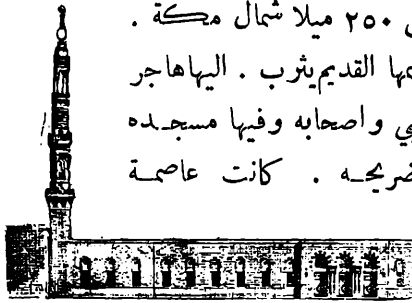 ٢٥٠ ميلا شمال مكة .
القديم يثرب . اليها هاجر
واصحابه وفيها مسجـده
. كانت عاصمـة